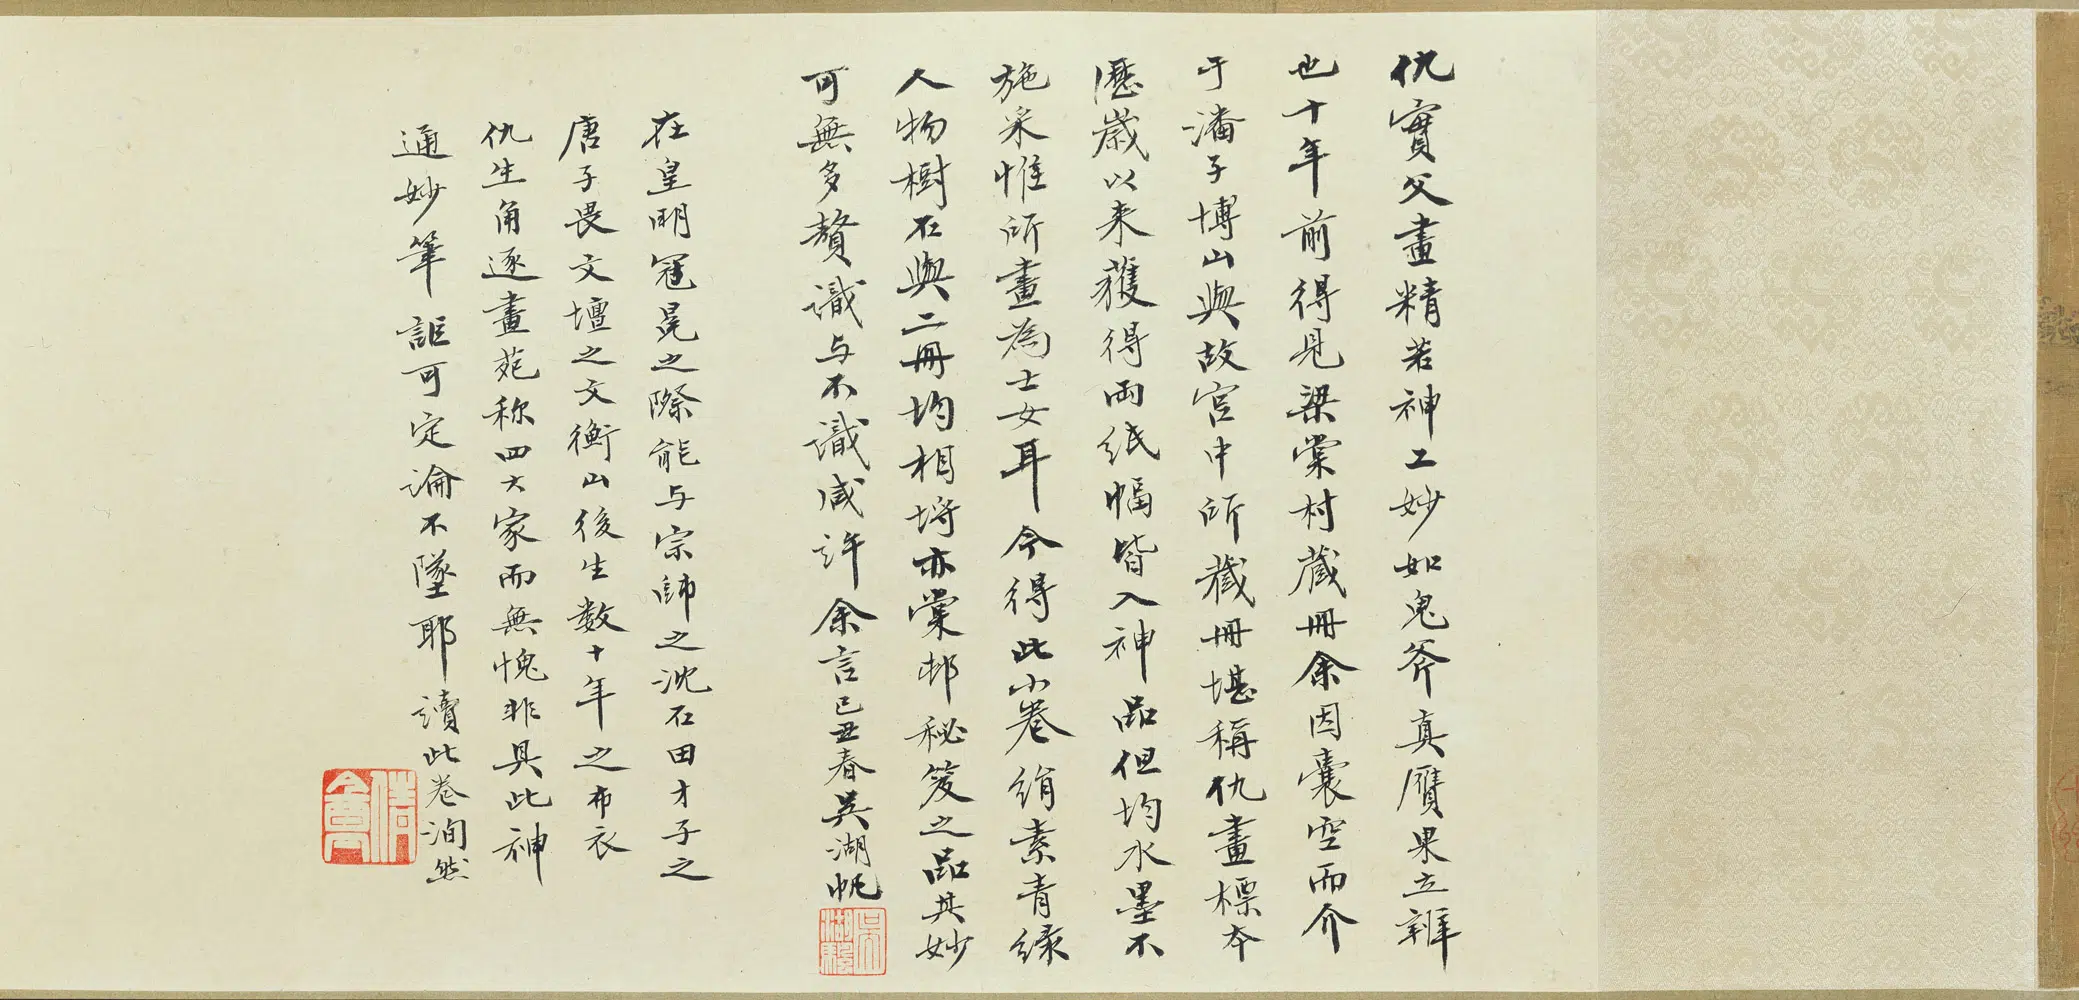 仇實父畫精若神工妙如鬼斧真贋果立辨
也十年前得見梁棠村藏冊余因囊空而介
于潘子博山與故宮中所藏冊堪稱仇畫標本
歷歲以來獲得兩紙幅皆入神品但均水墨不
施采惟所畫為士女耳今得此小卷絹素青綠
人物樹石與二冊均相埒亦棠邨秘笈之品其妙
可無多贅識与不識咸許余言己丑春吳湖帆
吳湖驅
在皇明冠冕之際能与宗師之沈石田才子之
唐子畏文壇之文衡山後生数十年之布衣
仇生角逐畫苑称四大家而無愧非具此神
通妙筆詎可定論不墜耶讀此卷洵然
倩盦